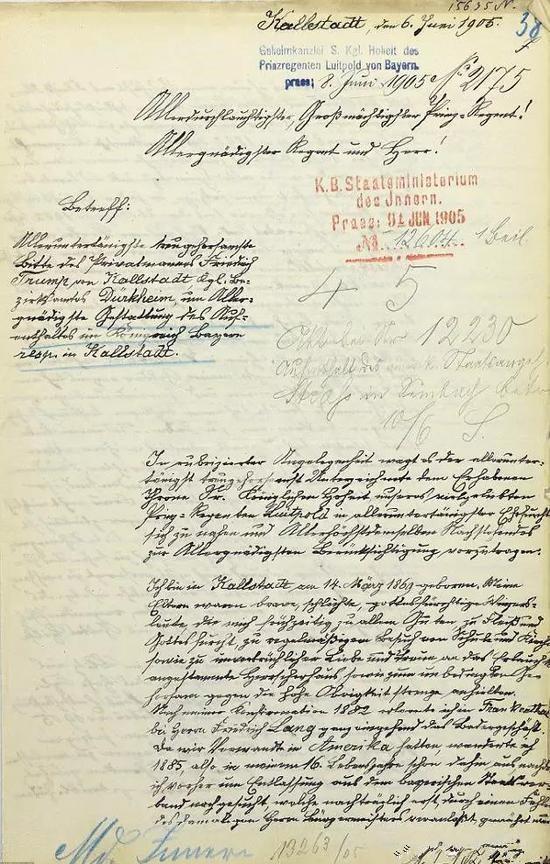 15635 N.
38
Kallstadt, den 6. Juni 1905.
Geheimkanzlei S. Kgl. Hoheit des
Prinzregenten Luitpold von Bayern.
praes: 8. Juni 1905 No 2175
Allerdurchlauchtigster, Großmächtigster Prinz-Regent!
Allergnädigster Regent und Herr!
K.B. Staatsministerium
des Innern.
Praes: 9. JUN. 1905
No. 12604. 1 Beil.
Betreff:
Alleruntertänigste treugehorsamste
Bitte des Privatmannes Friedrich
Trump von Kallstadt Kgl. Be-
zirksamtes Dürkheim, um Aller-
gnädigste Gestattung des Auf-
enthaltes im Königreich Bayern
resp. in Kallstadt.
4 5
12230
10/6 S.
In rubrizierter Angelegenheit wagt es der allerunter-
tänigst treugehorsamst Unterzeichnete dem Erhabenen
Throne Sr. Königlichen Hoheit unseres vielgeliebten
Prinz-Regenten Luitpold in alleruntertänigster Ehrfurcht
sich zu nahen und Allerhöchstdemselben Nachstehendes
zur Allergnädigsten Berücksichtigung vorzutragen.
Ich bin in Kallstadt am 14. März 1869 geboren. Meine
Eltern waren brave, schlichte, gottesfürchtige Winzers-
leute, die mich frühzeitig zu allem Guten zu Fleiß und
Gottesfurcht, zu regelmäßigem Besuch von Schule und Kirche
sowie zu unverbrüchlicher Liebe und Treue an das Erlaucht
angestammte Herrscherhaus sowie zum unbedingten Ge-
horsam gegen die hohe Obrigkeit strenge anhielten.
Nach meiner Konfirmation 1882 erlernte ich in Frankenthal
bei Herrn Friedrich Lang ganz eingehend das Badergeschäft.
Da wir Verwandte in Amerika hatten, wanderte ich
1885, also in meinem 16. Lebensjahre schon dahin aus nachdem
ich vorher um Entlassung aus dem bayerischen Staatsver-
band nachgesucht, welche nachträglich erst durch einen
des damaligen Herrn Bürgermeisters veranlaßt, gewährt
Md. Innern 13263/05